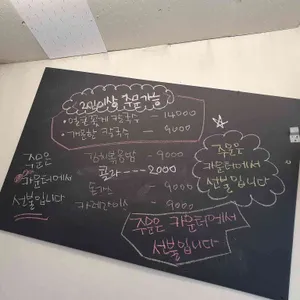 2인이상 주문가능
칼국수 - 14000
·개운한 칼국수 - 9000
김치볶음밥 - 9000
콜라 --- 2000
돈까스 9000
카레라이스 - 9000
주문은
카운터에서
선불입니다
주문은
카운터에서
선불입니다
주문은 카운터에서
선불입니다